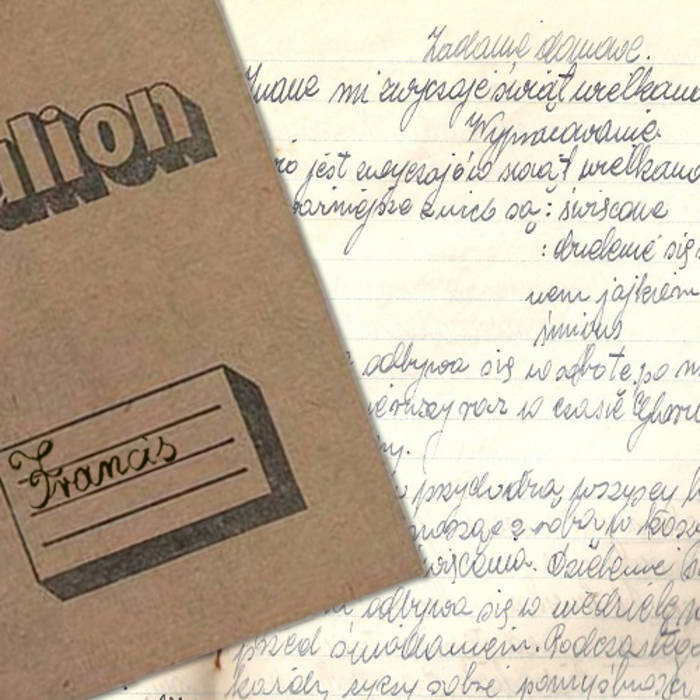 ulion
Francis
Zadanie domowe.
Znane mi zwyczaje świąt wielkano
Wypracowanie.
jest zwyczajów świąt wielkano
z nich są: święcone
: dzielenie się
nem jajkiem
śmigus
odbywa się w sobotę po
pierwszy raz w czasie
ny.
przychodzą wszyscy
z sobą w
święcenia. Dzielenie
odbywa się w niedzielę
przed śniadaniem. Podczas tego
każdy życzy sobie pomyślności